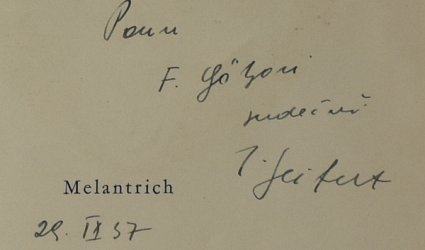 Panu
F. Götzovi
srdečně
J. Seifert
Melantrich
29. IX 37